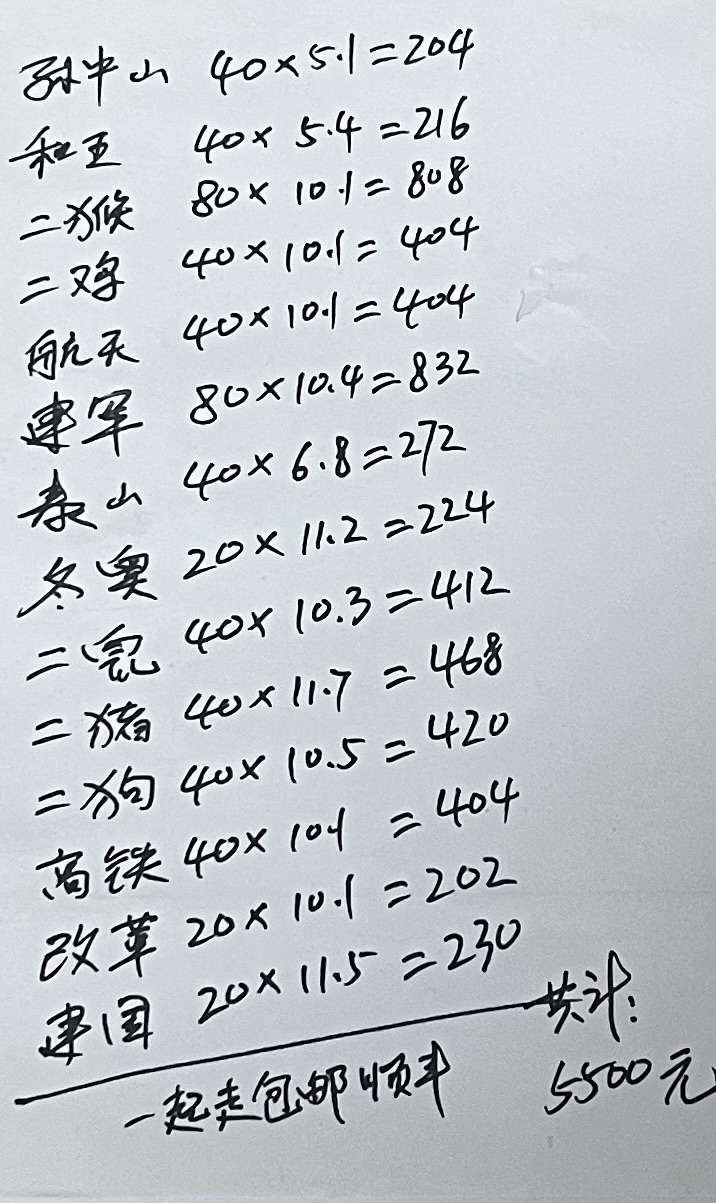 孙中山 40×5.1=204
和五 40×5.4=216
二猴 80×10.1=808
二鸡 40×10.1=404
航天 40×10.1=404
建军 80×10.4=832
泰山 40×6.8=272
冬奥 20×11.2=224
二鼠 40×10.3=412
二猪 40×11.7=468
二狗 40×10.5=420
高铁 40×10.1=404
改革 20×10.1=202
建国 20×11.5=230
共计:
一起走包邮顺丰 5500元